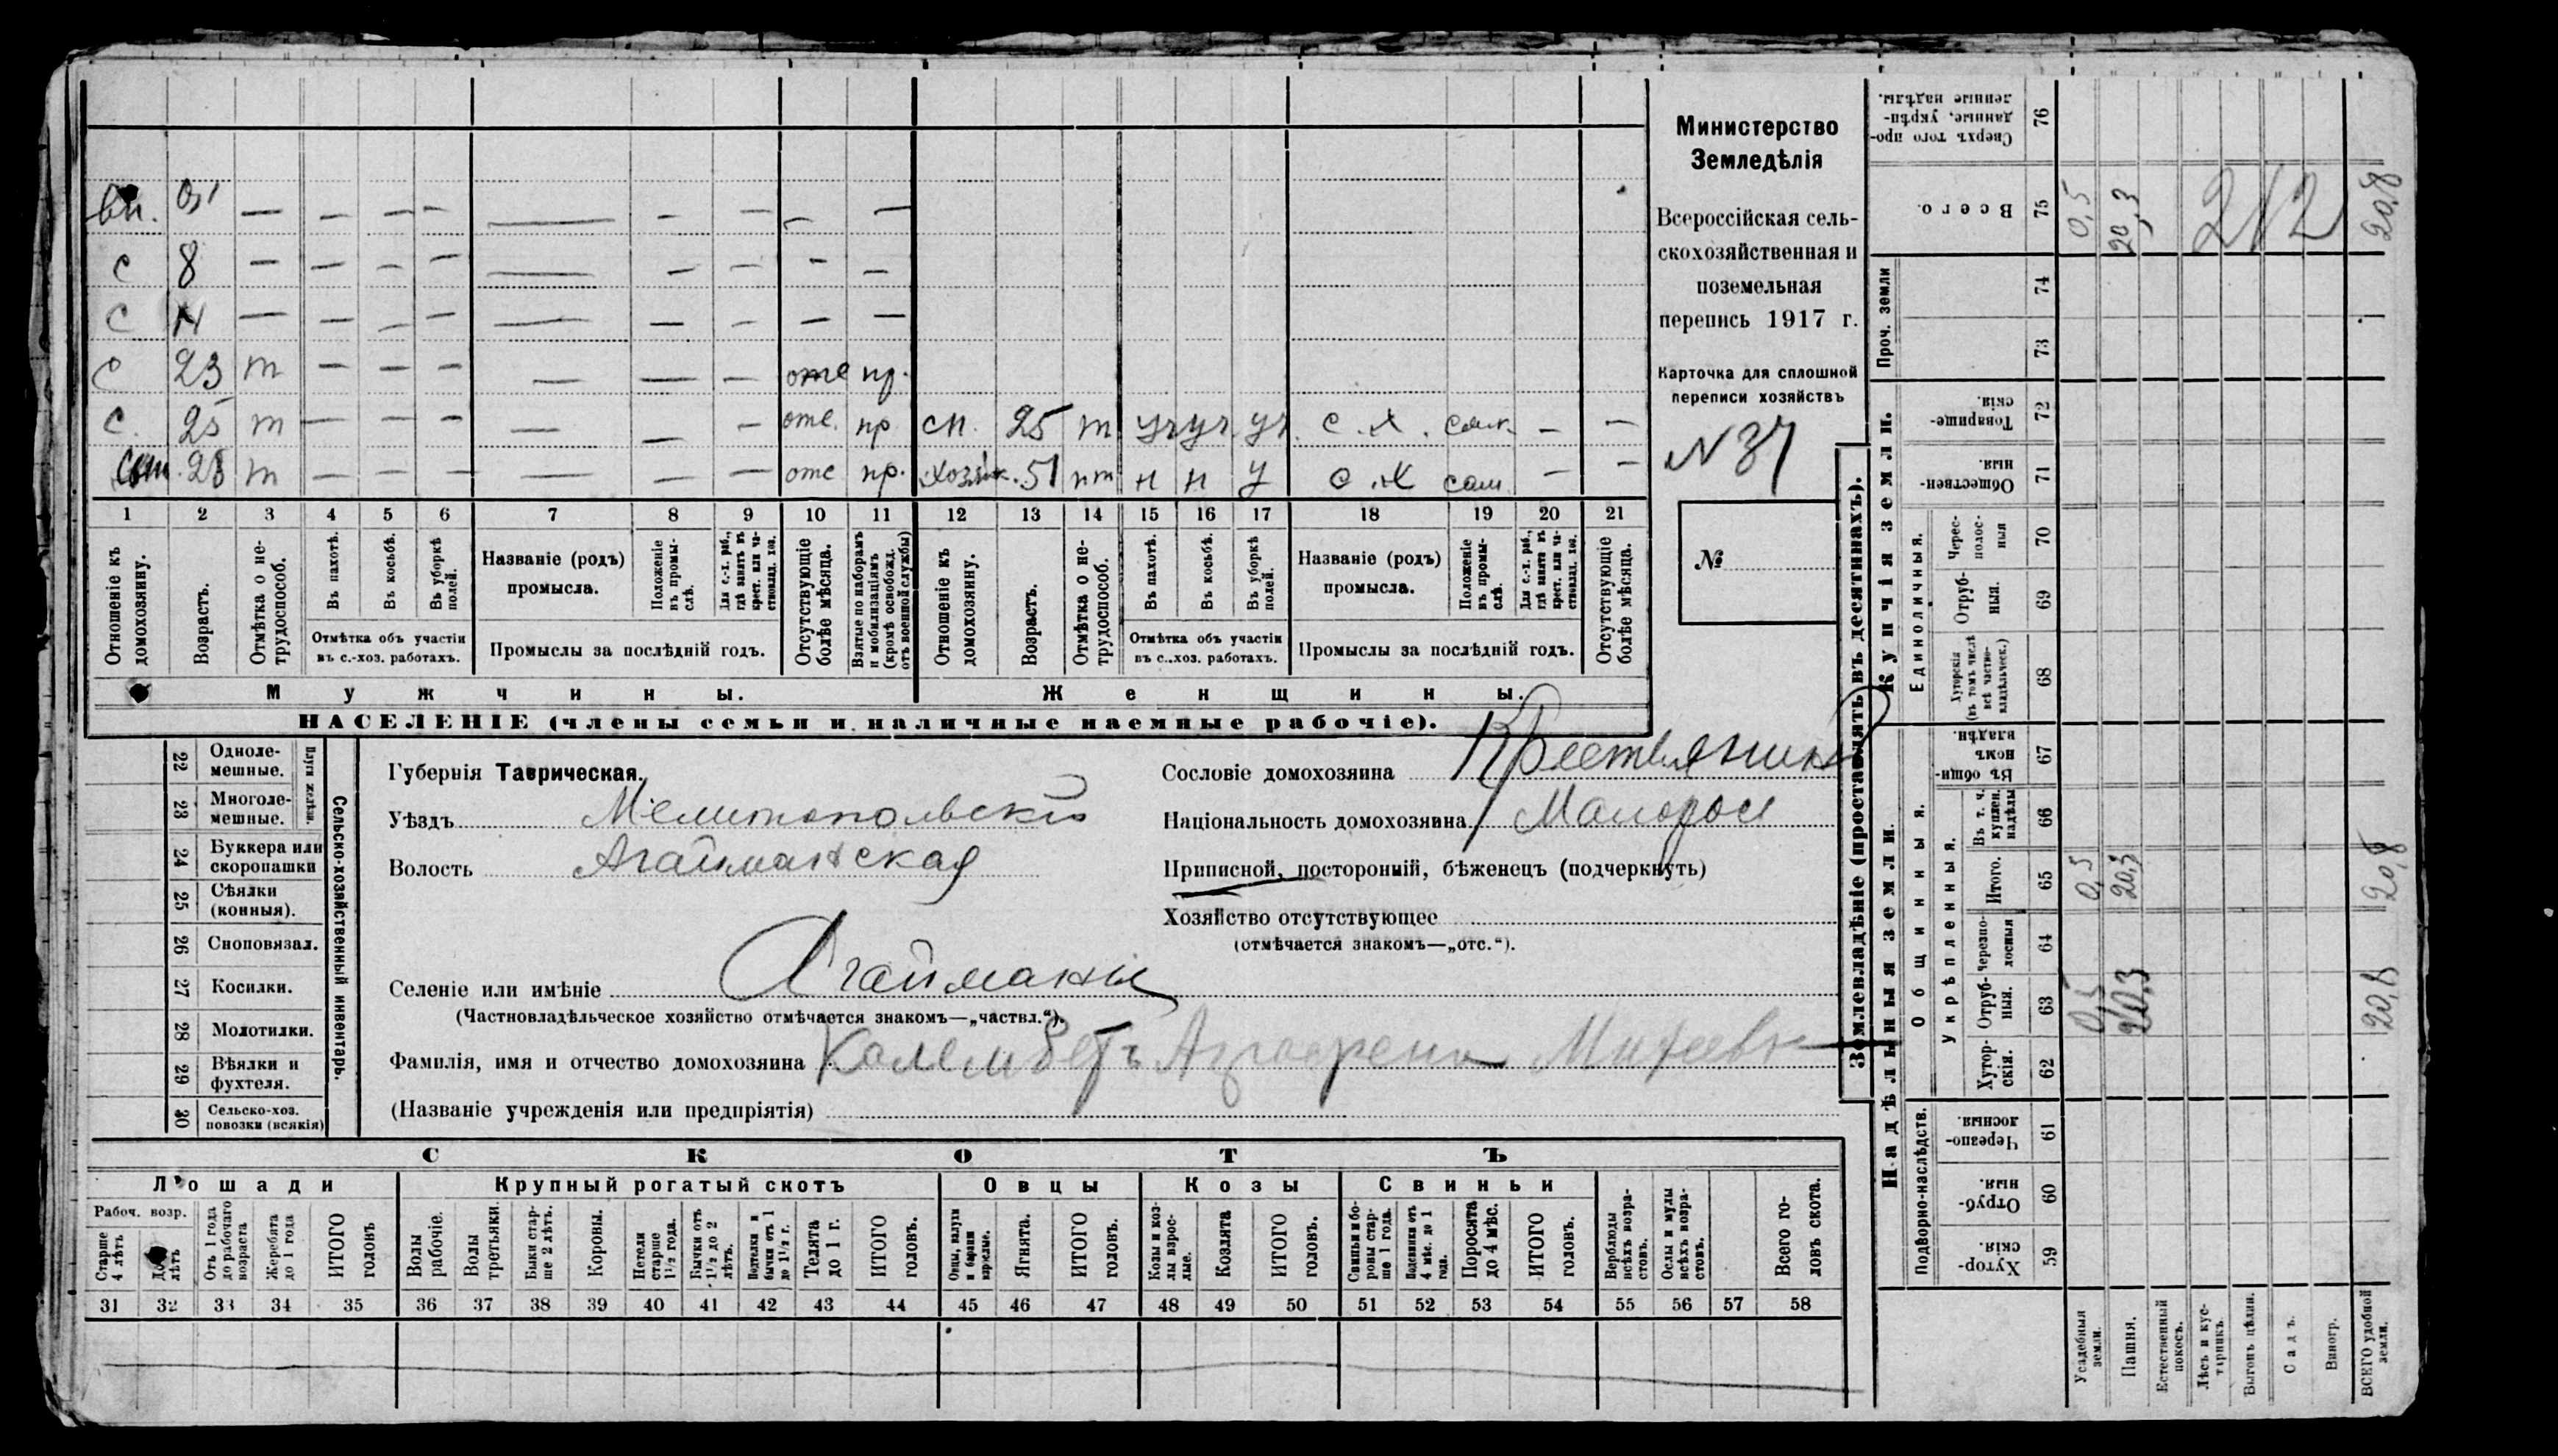 вн. 0,5 — — — — — — — — —
с 8 — — — — — — — — —
с 14 — — — — — — — — —
с 23 т — — — — — — отс пр.
с. 25 т — — — — — — отс. пр. сн. 25 т уч уч уч с. х. сам. — —
т — — — — — — отс пр. хозяйк. 51 пт н н у с. х сам — —
1 2 3 4 5 6 7 8 9 10 11 12 13 14 15 16 17 18 19 20 21
Отношеніе къ домохозяину.
Возрастъ.
Отмѣтка о нетрудоспособ.
Въ пахотѣ.
Въ косьбѣ.
Въ уборкѣ полей.
Отмѣтка объ участіи
въ с.-хоз. работахъ.
Названіе (родъ)
промысла.
Положеніе въ промыслѣ.
Для с.-х. раб., гдѣ занятъ въ крест. или частновлад. хоз.
Промыслы за послѣдній годъ.
Отсутствующіе болѣе мѣсяца.
Взятые по наборамъ и мобилизаціямъ (кромѣ освобожд. отъ военной службы)
Отношеніе къ домохозяину.
Возрастъ.
Отмѣтка о нетрудоспособ.
Въ пахотѣ.
Въ косьбѣ.
Въ уборкѣ полей.
Отмѣтка объ участіи
въ с.-хоз. работахъ.
Названіе (родъ)
промысла.
Положеніе въ промыслѣ.
Для с.-х. раб., гдѣ занята въ крест. или частновлад. хоз.
Промыслы за послѣдній годъ.
Отсутствующіе болѣе мѣсяца.
Мужчины. Женщины.
НАСЕЛЕНІЕ (члены семьи и наличные наемные рабочіе).
Министерство
Земледѣлія
Всероссійская сель-
скохозяйственная и
поземельная
перепись 1917 г.
Карточка для сплошной
переписи хозяйствъ
N 37
№
Сельско-хозяйственный инвентарь.
Плуги желѣзн.
22 Одноле-
мешные.
23 Многоле-
мешные.
24 Буккера или
скоропашки
25 Сѣялки
(конныя).
26 Сноповязал.
27 Косилки.
28 Молотилки.
29 Вѣялки и
фухтеля.
30 Сельско-хоз.
повозки (всякія)
Губернія Таврическая.
Уѣздъ Мелитопольскій
Волость Агайманская
Селеніе или имѣніе Агайманы
(Частновладѣльческое хозяйство отмѣчается знакомъ—„частвл.“).
Фамилія, имя и отчество домохозяина Колембетъ Аграфена
(Названіе учрежденія или предпріятія)
Сословіе домохозяина Крестьянинъ
Національность домохозяина Малоросс
Приписной, посторонній, бѣженецъ (подчеркнуть)
Хозяйство отсутствующее
(отмѣчается знакомъ—„отс.“).
СКОТЪ
Лошади Крупный рогатый скотъ Овцы Козы Свиньи
Рабоч. возр.
Старше 4 лѣтъ
До 4 лѣтъ
Отъ 1 года до рабочаго возраста
Жеребята до 1 года
ИТОГО головъ
Волы рабочіе.
Волы третьяки.
Быки старше 2 лѣтъ.
Коровы.
Нетели старше 1½ года.
Бычки отъ 1½ до 2 лѣтъ.
Подтелки и бычки отъ 1 до 1½ г.
Телята до 1 г.
ИТОГО головъ.
Овцы, валухи и бараны взрослые.
Ягнята.
ИТОГО головъ.
Козы и козлы взрослые.
Козлята
ИТОГО головъ.
Свиньи и боровы старше 1 года.
Подсвинки отъ 4 мѣс. до 1 года.
Поросята до 4 мѣс.
ИТОГО головъ.
Верблюды всѣхъ возрастовъ.
Ослы и мулы всѣхъ возрастовъ.
Всего головъ скота.
31 32 33 34 35 36 37 38 39 40 41 42 43 44 45 46 47 48 49 50 51 52 53 54 55 56 57 58
Землевладѣніе (проставлять въ десятинахъ).
Надѣльныя земли.
Купчія земли.
Проч. земли
Подворно-наслѣдств.
Общинныя.
Укрѣпленныя.
Единоличныя.
76 Сверхъ того проданные, укрѣпленные надѣлы.
75 Всего. 0,5 20,3 212 20,8
74
73
72 Товарищескія.
71 Общественныя.
70 Черезполосныя
69 Отрубныя.
68 Хуторскія (въ томъ числѣ всѣ частновладѣльческ.)
67 Въ общиномъ владѣн.
66 Въ т. ч. куплен. надѣлы
65 Итого. 0,5 20,3 20,8
64 Черезполосныя
63 Отрубныя. 0,5 20,3 20,8
62 Хуторскія.
61 Черезполосныя.
60 Отрубныя.
59 Хуторскія.
Усадебныя земли.
Пашня.
Естественный покосъ.
Лѣсъ и кустарникъ.
Выгонъ цѣлин.
Садъ.
Виногр.
ВСЕГО удобной земли.